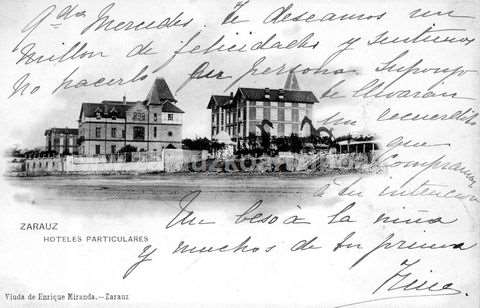 Qda Mercedes. Te deseamos un
millon de felicidades y sentimos
no hacerlo por persona. Supongo
te llevaran
un recuerdito
que
Compramos
a tu intencion
ZARAUZ
HOTELES PARTICULARES
Un beso á la niña
y muchos de tu prima
Viuda de Enrique Miranda.—Zarauz